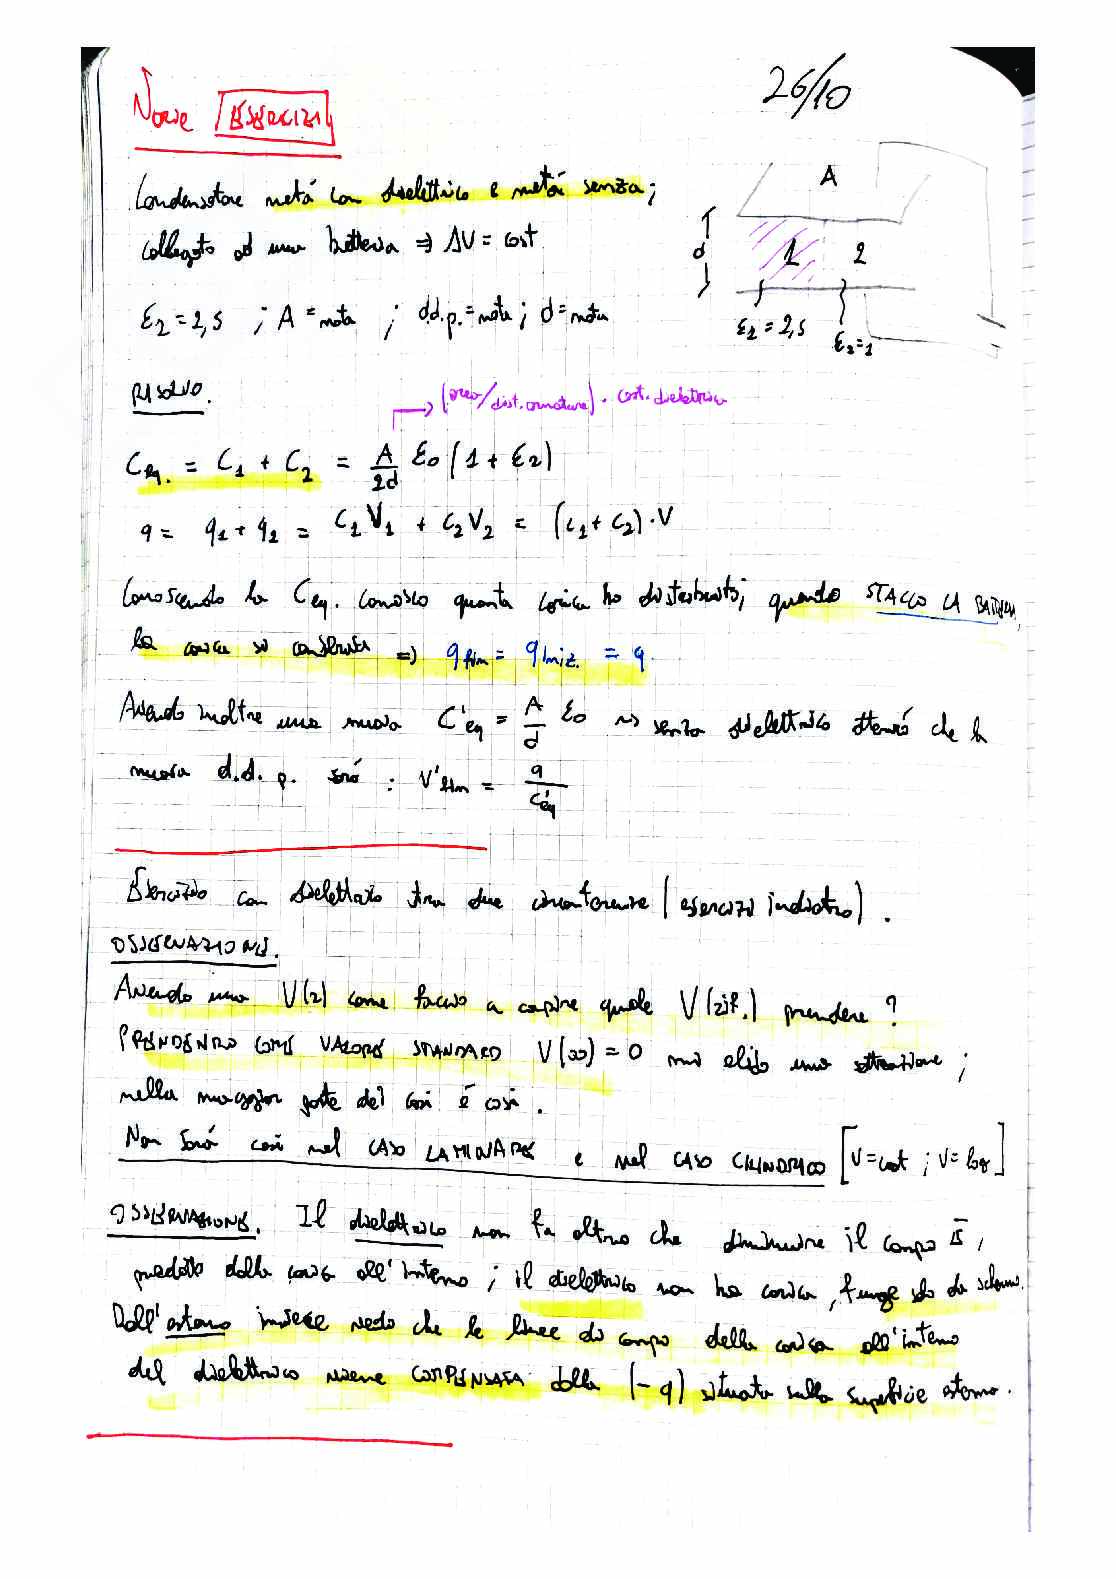 26/10
Nove ESERCIZI
Condensatore metá con dielettrico e metá senza;
collegato ad una batteria ⇒ ΔV = cost
ε2 = 2,5 ; A = nota ; d.d.p. = nota ; d = nota
A
d
1 2
ε1 = 2,5
ε2 = 1
RISOLVO.
(area/dist. armature) · cost. dielettrica
Ceq. = C1 + C2 = A/2d ε0 (1 + ε2)
q = q1 + q2 = C1V1 + C2V2 = (C1 + C2) · V
Conoscendo la Ceq. conosco quanta carica ho distribuito; quando STACCO LA BATTERIA,
la carica si conserva => q fin = q iniz. = q.
Avendo inoltre una nuova C'eq = A/d ε0 ~> senza dielettrico otterró che la
nuova d.d.p. sará : V'fin = q/C'eq
Esercizio con dielettrico tra due armature (esercizi indietro).
OSSERVAZIONE.
Avendo una V(z) come faccio a capire quale V(rif.) prendere ?
PRENDENDO COME VALORE STANDARD V(∞) = 0 mi elido una sottrazione ;
nella maggior parte dei casi é cosí.
Non sará cosí nel CASO LAMINARE e nel CASO CILINDRICO [V=cost ; V=log]
OSSERVAZIONE. Il dielettrico non fa altro che diminuire il campo E,
prodotto dalla carica all'interno ; il dielettrico non ha carica, funge solo da schermo.
Dall'esterno invece vedo che le linee di campo della carica all'interno
del dielettrico viene COMPENSATA dalla (-q) situata sulla superficie esterna.